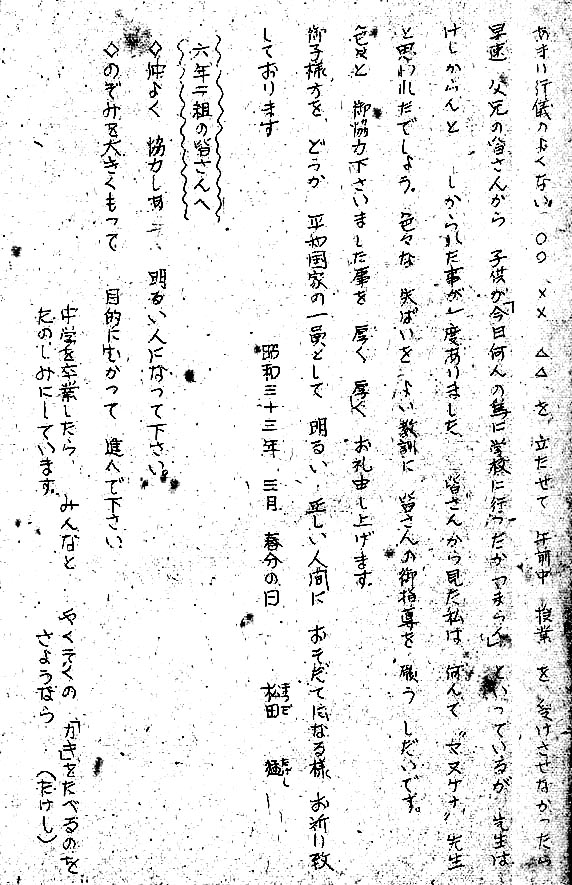 あまり行儀のよくない 〇〇 ×× △△ を 立たせて 午前中 授業 を 受けさせなかったら
早速 父兄の皆さんから 子供が「今日何んの為に学校に行ったかつまらん」といっているが 先生は
けしからんと しかられた事が一度ありました 皆さんから見た私は 何んて 〃セヌケナ〃 先生
と思われたでしょう。色々な 失ぱいを よい教訓に 皆さんの御指導を 願う しだいです。
色々と 御協力下さいました事を 厚く 厚く お礼申し上げます
御子様方を、どうか 平和国家の一員として 明るい 正しい人間に おそだてになる様 お祈り致
しております
昭和三十三年 三月 春分の日
松田 猛
まつだ たけし
六年二組の皆さんへ
◇仲よく 協力しあって、明るい人になって下さい。
◇のぞみを大きくもって 目的にむかって 進んで下さい
中学を卒業したら みんなと やくそくの 「かき」をたべるのを
たのしみにしています。 さようなら (たけし)